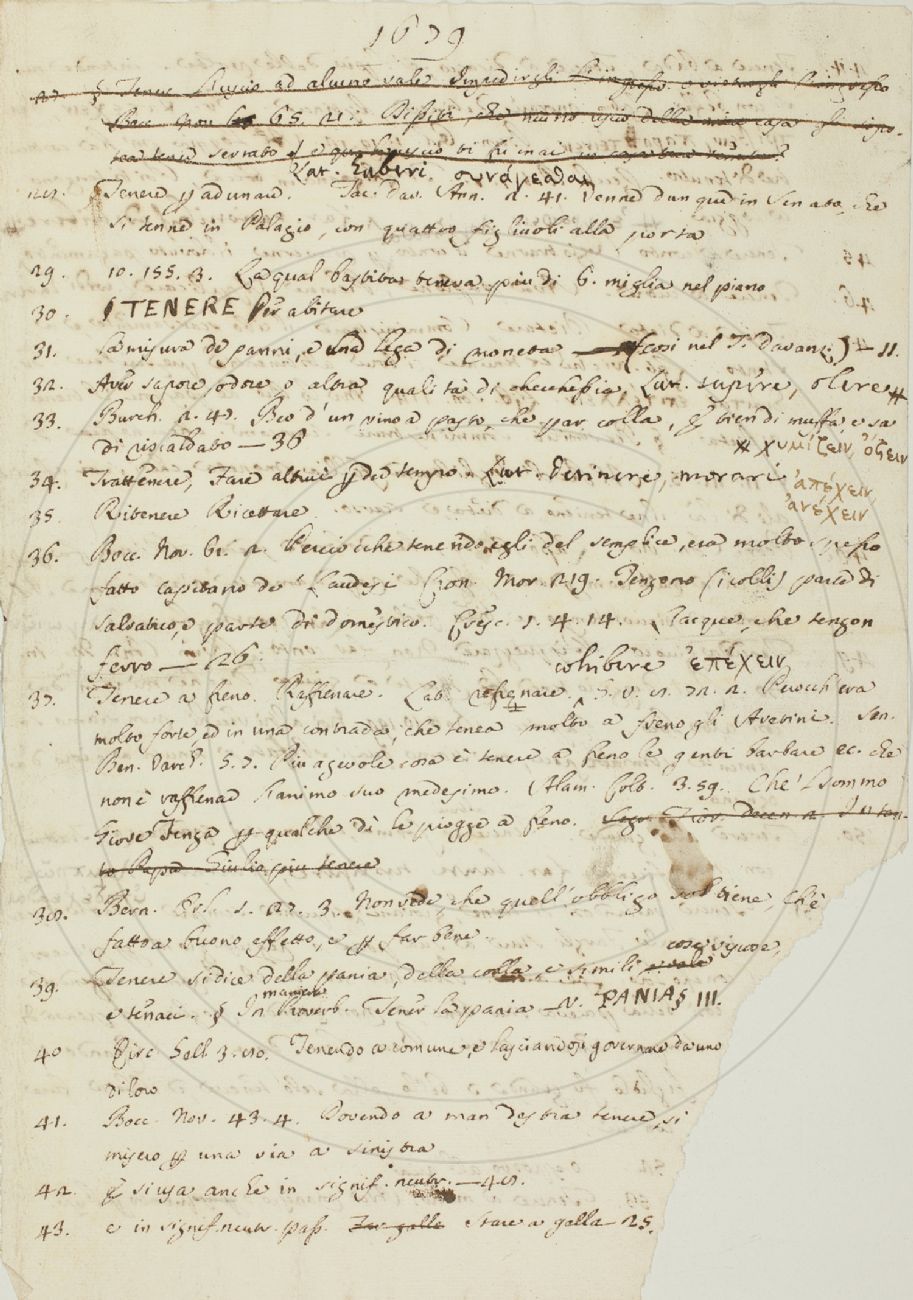 1679
27. § Tener l'uscio ad alcuno vale Impedirgli l'ingresso
Bocc. Nov. 65. 21. 
tea tener serrato
Lat. haberi. συνάγεσθαι
28. Tenere p adunare. Tac. Dav. Ann. 2. 41. Venne dunque in Senato, che
si tenne in Palagio, con quattro figliuoli alla porta
29. 10. 155. 3. La qual bastita teneva piu di 6. miglia nel piano
30. § TENERE Per abitare
31. la misura de panni, e una lega di moneta — (così nel T. Davanz.) — 11.
32. Aver sapore, odore o altra qualità di checchessia, Lat. sapere, olere #
33. Burch. 2. 47. Beo d'un vino a pasto, che par colla, E tien di muffa e sa
di riscaldato — 36 # χυμίζειν, ὄζειν
34. Trattenere, Fare altrui pder tempo. Lat. detinere, morari ἀπέχειν
ἀνέχειν
35. Ritenere Ricettare
36. Bocc. Nov. 61. 2. Perciocche tenendo egli del semplice, era molto spesso
fatto capitano de' Laudesi Cron. Mor. 219. Tengono (i colli) parte di
salvatico, e parte di domestico. Cresc. 1. 4. 14. L'acque, che tengon
ferro — 26. cohibere ἐπέχειν
37. Tenere a freno. Raffrenare. Lat. refrenare, Perocch'era
molto forte, ed in una contrada, che tenea molto a freno gli Aretini. Sen.
Ben. Varch. 5. 7. Piu agevole cosa è tenere a freno le genti barbare ec. che
non è raffrenare l'animo suo medesimo. Alam. Colt. 3. 59. Che 'l sommo
Giove Tenga p qualche dì le piogge a freno.
to Papa Giulio piu tenere
38. Bern. Orl. 1. 27. 3. Non vede, che quell'obbligo sol tiene, Ch'è
fatto a buono effetto, e p far bene.
39. Tenere si dice della pania, della colla, e simili cose viscose,
e tenaci. § In maniera Proverb. Tener la pania — V. PANIA § III.
40 Circ. Gell. 3. 80. Tenendo a comune, e lasciandosi governare da uno
di loro
41. Bocc. Nov. 43. 4. Dovendo a man destra tenere, si
misero p una via a sinistra
42. E si usa anche in signif. neutr. — 48.
43. e in signif. neutr. pass. Stare a galla — 25.